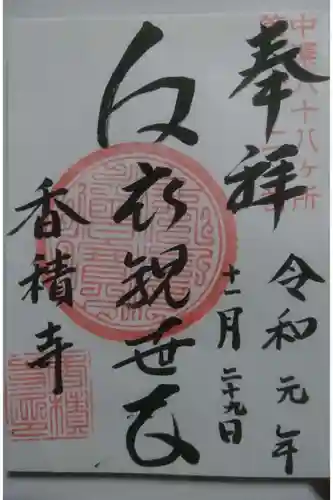 八十八ヶ所
奉拝
令和元年
十一月二十九日
白衣観世音
香積寺